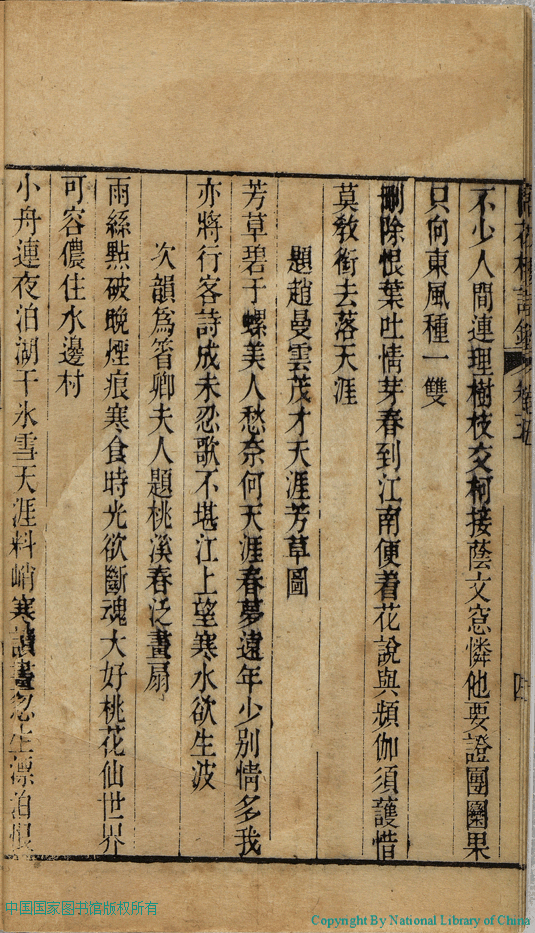 不少人間連理樹枝交柯接蔭文窓憐他要證團圞果
只向東風種一雙
刪除恨葉吐情芽春到江南便着花說與頻伽須護惜
莫教銜去落天涯
題趙曼雲茂才天涯芳草圖
芳草碧于螺美人愁奈何天涯春夢遠年少別情多我
亦將行客詩成未忍歌不堪江上望寒水欲生波
次韻爲箬卿夫人題桃溪春泛畫扇
雨絲點破晚煙痕寒食時光欲斷魂大好桃花仙世界
可容儂住水邊村
小舟連夜泊湖干氷雪天涯料峭寒讀畫忽生漂泊恨
四
中国国家图书馆版权所有
Copyright By National Library of China